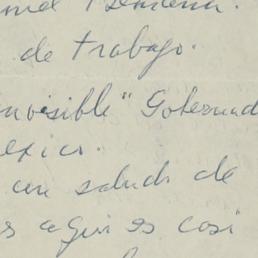 de trabajo.
invisible" Gobernad
exico.
un saludo de
s aqui es casi